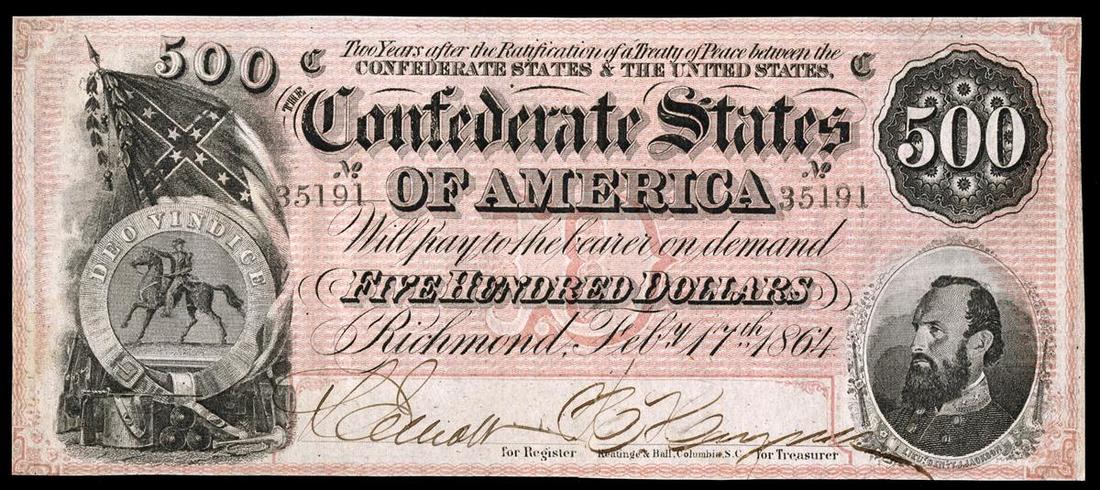 500
C Two Years after the Ratification of a Treaty of Peace between the C
CONFEDERATE STATES & THE UNITED STATES,
500
THE Confederate States
OF AMERICA
No 35191
No 35191
DEO VINDICE
Will pay to the bearer on demand
FIVE HUNDRED DOLLARS
Richmond, Feby. 17th. 1864
for Register
Keatinge & Ball, Columbia, S.C.
for Treasurer
LIEUT. GEN. T. J. JACKSON